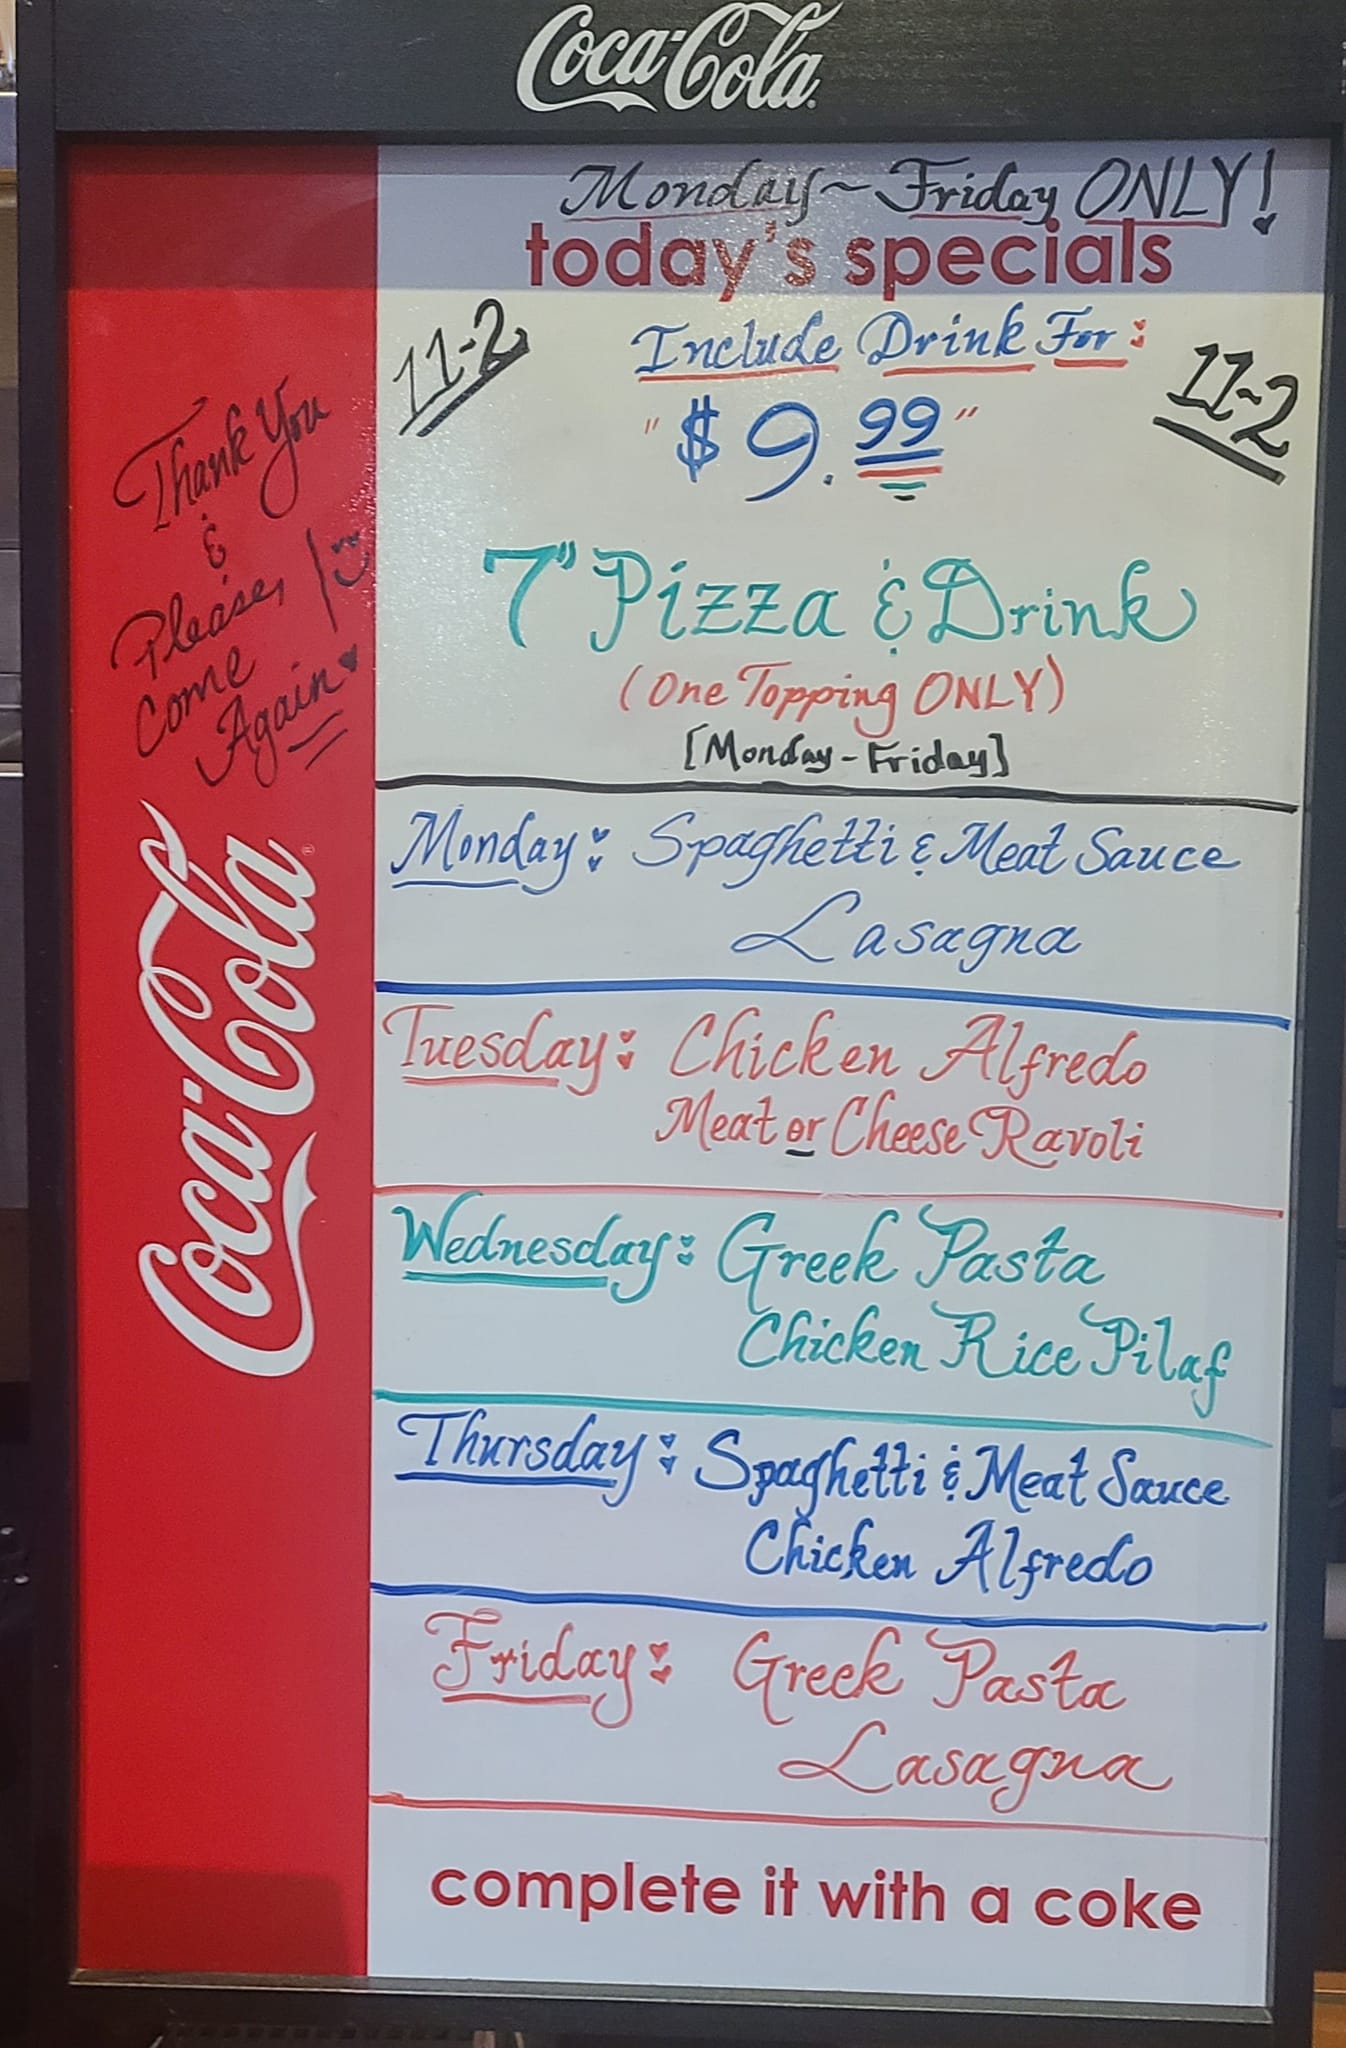 Coca-Cola
Monday~Friday ONLY!
today's specials
11-2
Include Drink For:
11-2
"$9.99"
7" Pizza & Drink
(One Topping ONLY)
[Monday-Friday]
Thank You
&
Please,
Come
Again
Coca-Cola
Monday: Spaghetti & Meat Sauce
Lasagna
Tuesday: Chicken Alfredo
Meat or Cheese Ravoli
Wednesday: Greek Pasta
Chicken Rice Pilaf
Thursday: Spaghetti & Meat Sauce
Chicken Alfredo
Friday: Greek Pasta
Lasagna
complete it with a coke